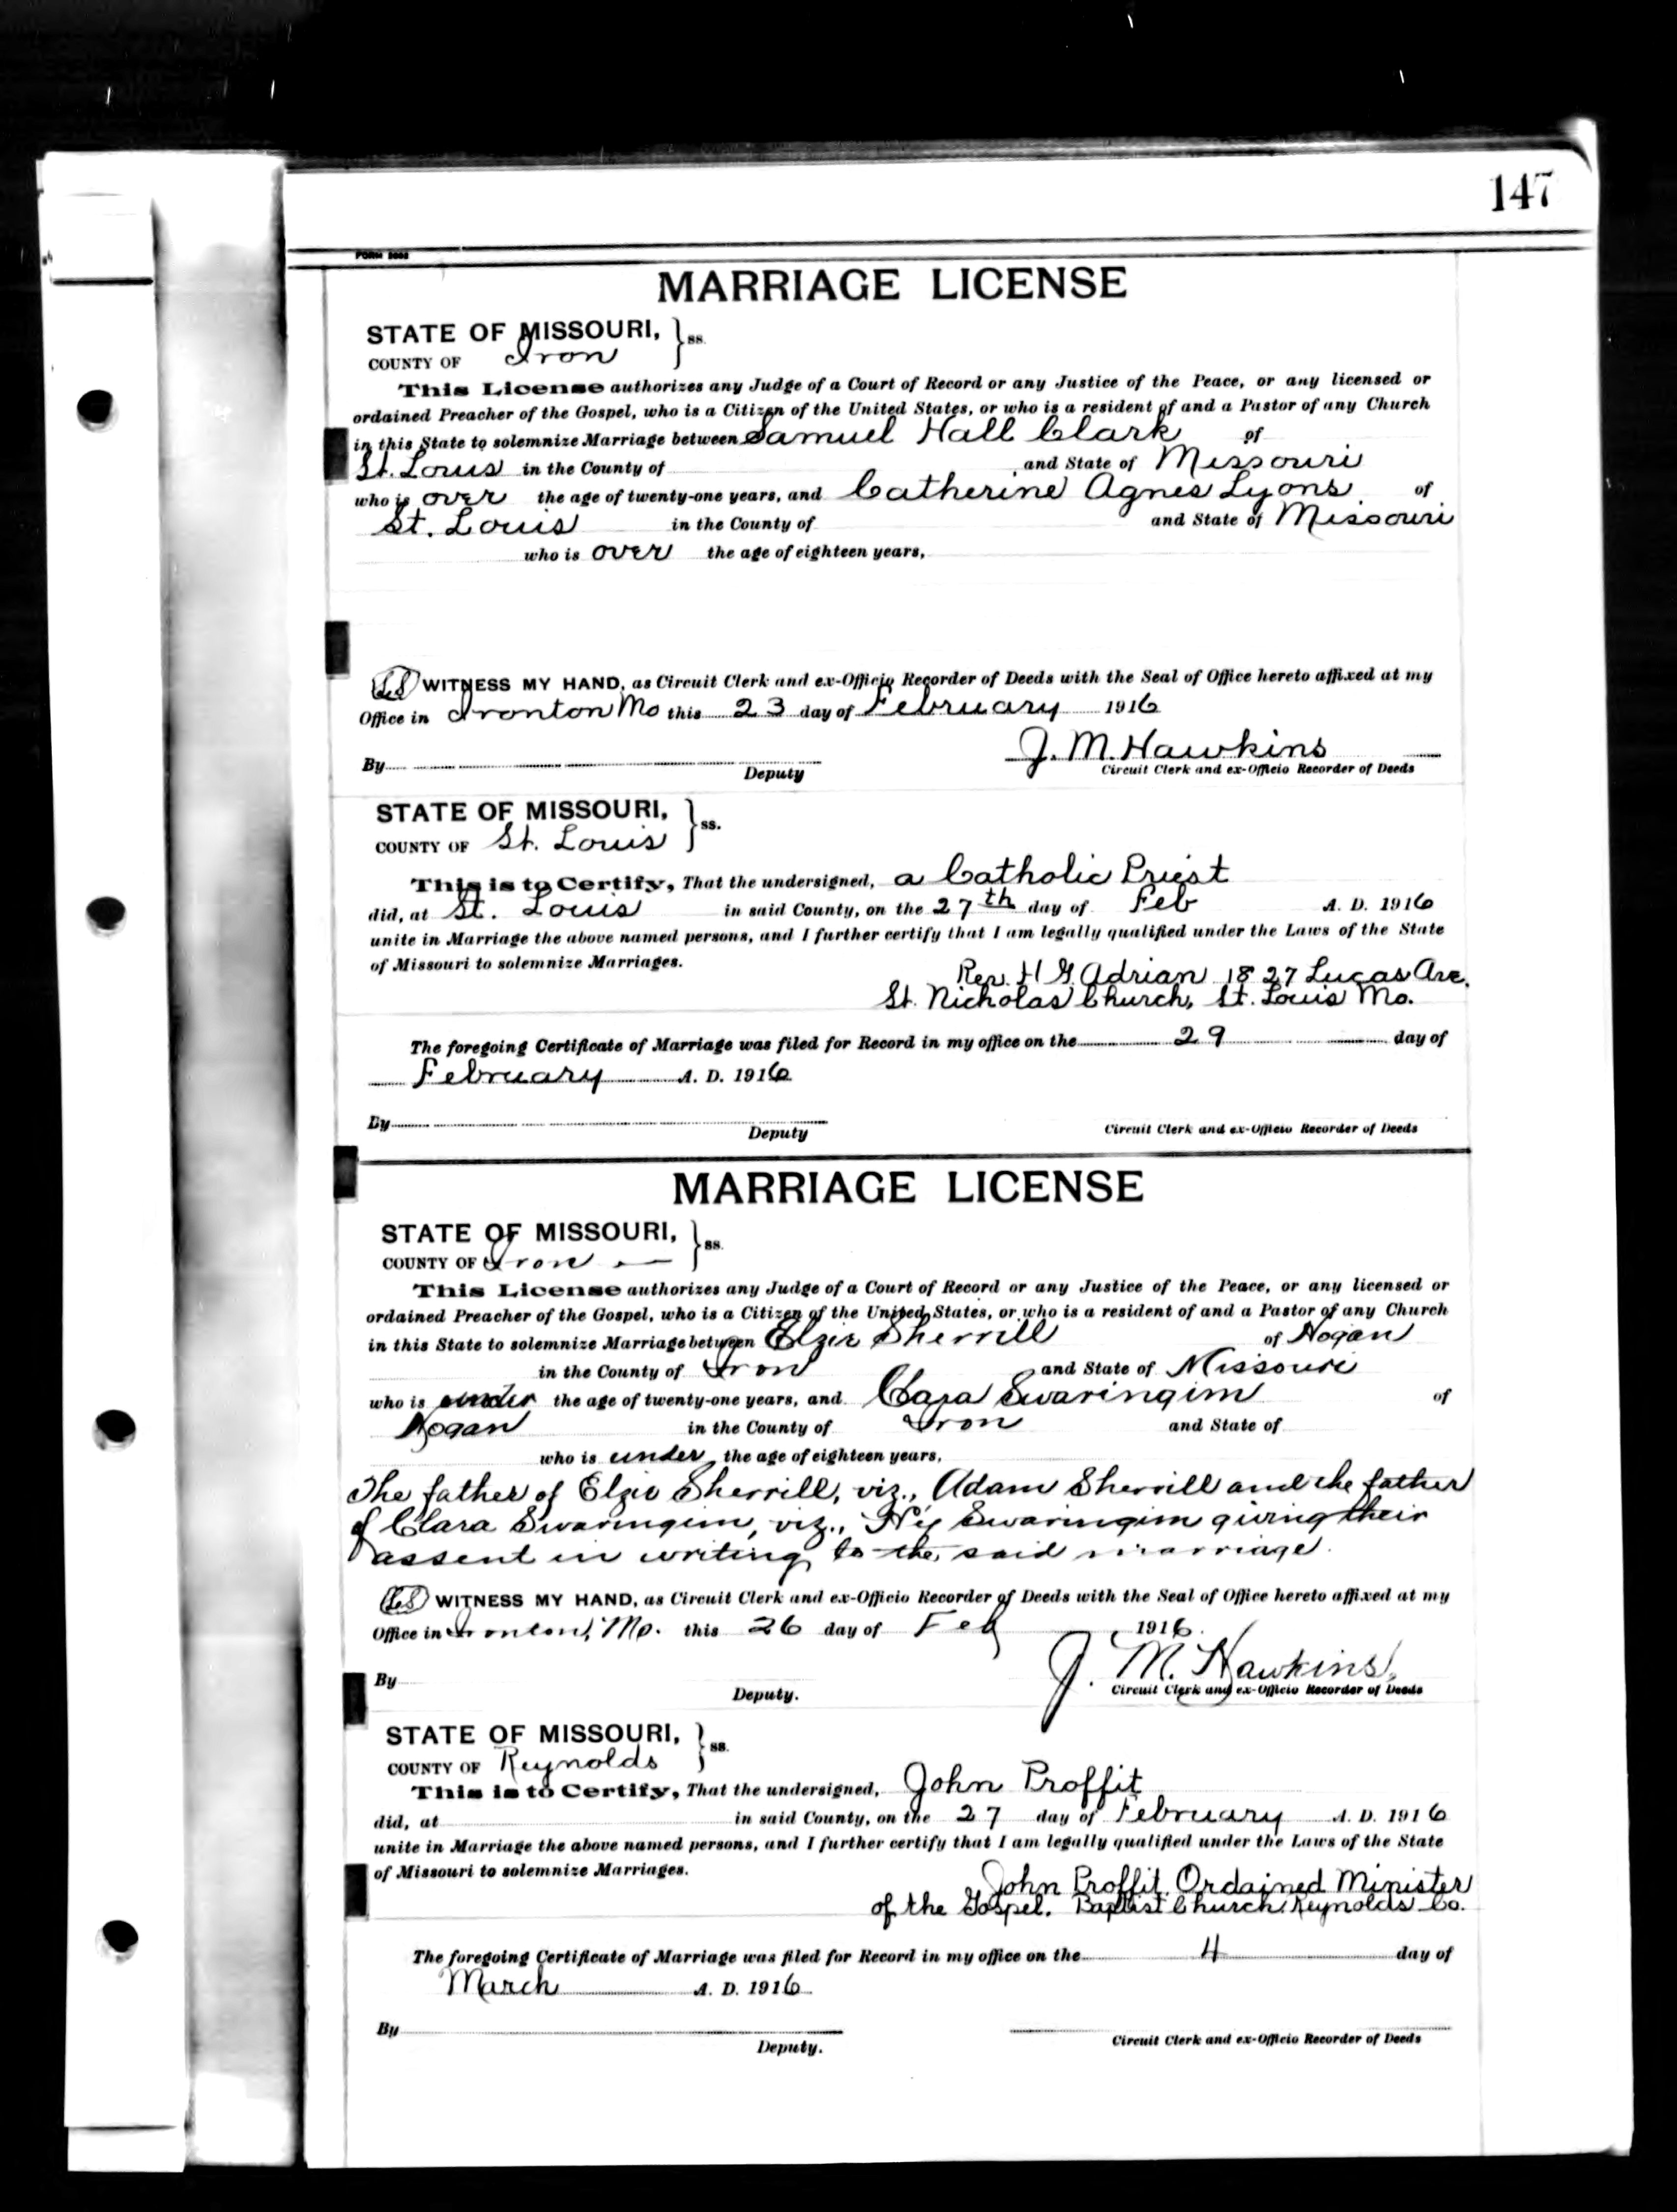 147
FORM
MARRIAGE LICENSE
STATE OF MISSOURI, } ss.
COUNTY OF Iron
This License authorizes any Judge of a Court of Record or any Justice of the Peace, or any licensed or
ordained Preacher of the Gospel, who is a Citizen of the United States, or who is a resident of and a Pastor of any Church
in this State to solemnize Marriage between Samuel Hall Clark of
St. Louis in the County of and State of Missouri
who is over the age of twenty-one years, and Catherine Agnes Lyons of
St. Louis in the County of and State of Missouri
who is over the age of eighteen years,
WITNESS MY HAND, as Circuit Clerk and ex-Officio Recorder of Deeds with the Seal of Office hereto affixed at my
Office in Ironton Mo this 23 day of February 1916
J. M. Hawkins
By Deputy Circuit Clerk and ex-Officio Recorder of Deeds
STATE OF MISSOURI, } ss.
COUNTY OF St. Louis
This is to Certify, That the undersigned, a Catholic Priest
did, at St. Louis in said County, on the 27th day of Feb A. D. 1916
unite in Marriage the above named persons, and I further certify that I am legally qualified under the Laws of the State
of Missouri to solemnize Marriages.
Rev. H G. Adrian 1827 Lucas Ave.
St. Nicholas Church, St. Louis Mo.
The foregoing Certificate of Marriage was filed for Record in my office on the 29 day of
February A. D. 1916
By Deputy Circuit Clerk and ex-Officio Recorder of Deeds
MARRIAGE LICENSE
STATE OF MISSOURI, } ss.
COUNTY OF Iron —
This License authorizes any Judge of a Court of Record or any Justice of the Peace, or any licensed or
ordained Preacher of the Gospel, who is a Citizen of the United States, or who is a resident of and a Pastor of any Church
in this State to solemnize Marriage between Elzie Sherrill of Hogan
in the County of Iron and State of Missouri
who is under the age of twenty-one years, and Clara Swaringim of
Hogan in the County of Iron and State of
who is under the age of eighteen years,
The father of Elzie Sherrill, viz., Adam Sherrill and the father
of Clara Swaringim, viz., Swaringim giving their
assent in writing to the said marriage.
WITNESS MY HAND, as Circuit Clerk and ex-Officio Recorder of Deeds with the Seal of Office hereto affixed at my
Office in Ironton, Mo. this 26 day of Feb 1916.
J. M. Hawkins,
By Deputy. Circuit Clerk and ex-Officio Recorder of Deeds
STATE OF MISSOURI, } ss.
COUNTY OF Reynolds
This is to Certify, That the undersigned, John Proffit
did, at in said County, on the 27 day of February A. D. 1916
unite in Marriage the above named persons, and I further certify that I am legally qualified under the Laws of the State
of Missouri to solemnize Marriages.
John Proffit Ordained Minister
of the Gospel. Baptist Church Reynolds Co.
The foregoing Certificate of Marriage was filed for Record in my office on the 4 day of
March A. D. 1916
By Deputy. Circuit Clerk and ex-Officio Recorder of Deeds